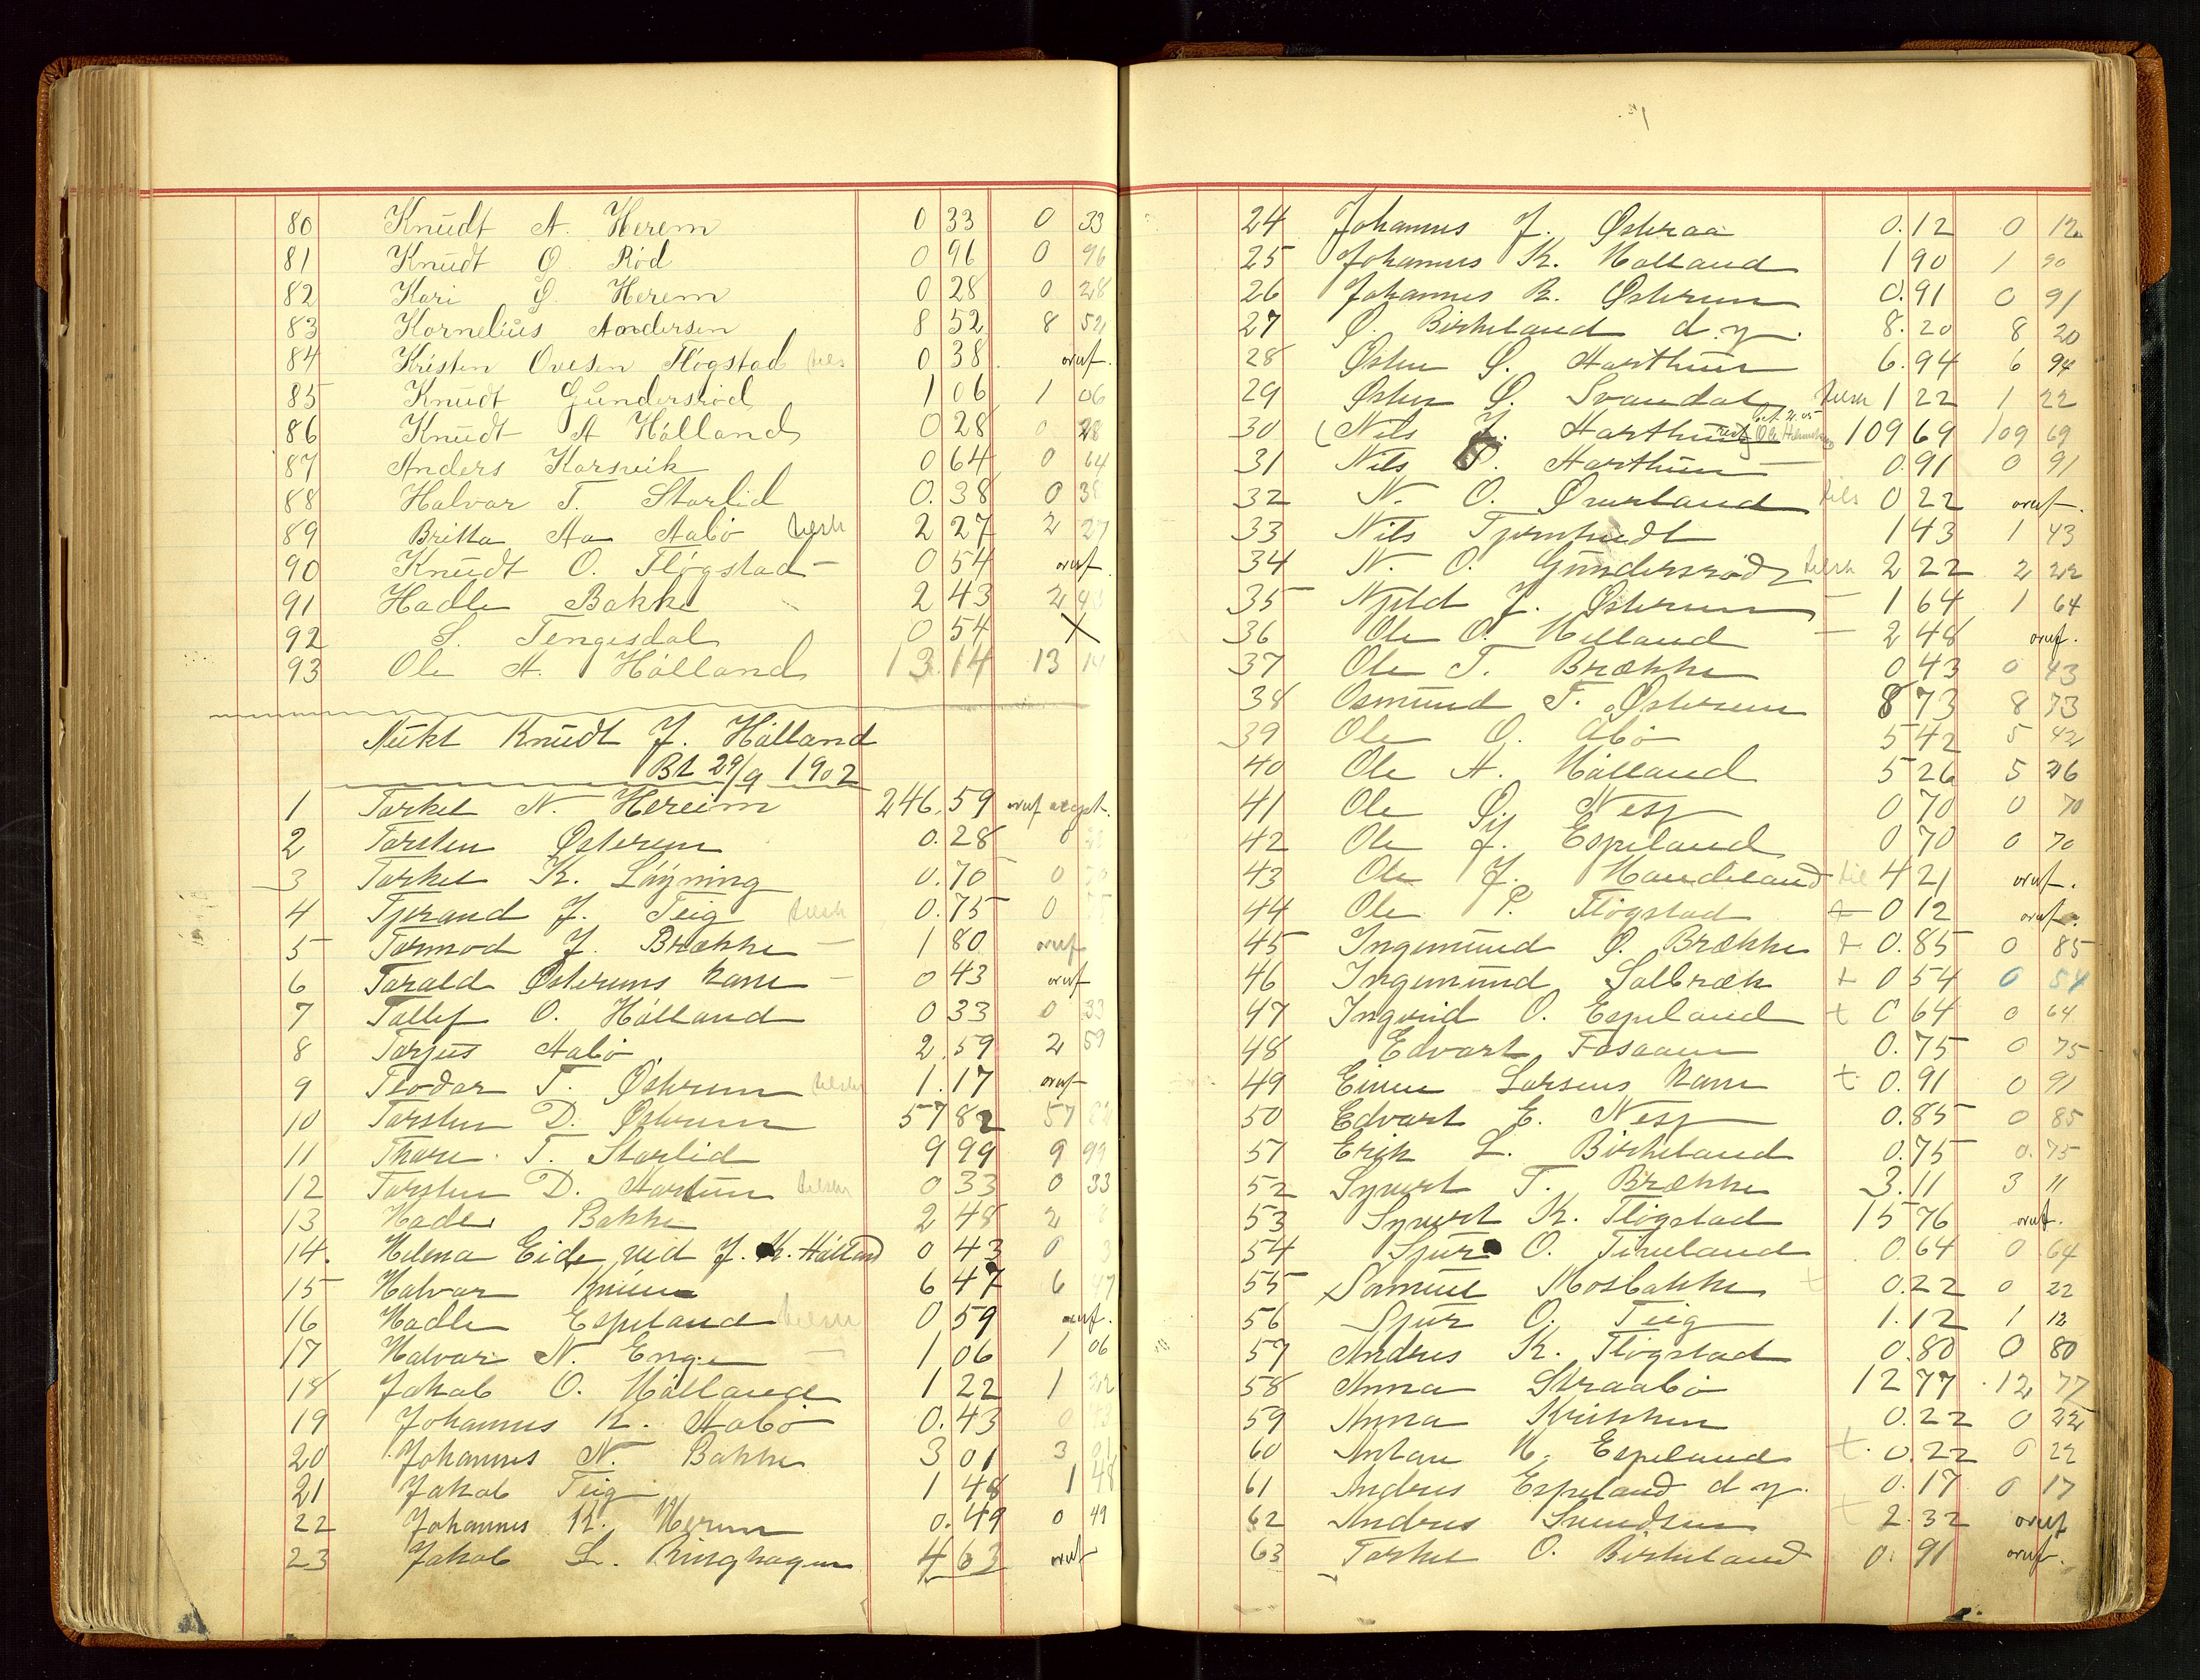 80 Knudt A. Herem 0 33 0 33
81 Knudt O. Rød 0 96 0 96
82 Kari O. Herem 0 28 0 28
83 Kornelius Andersen 8 52 8 52
84 Kristen Ovesen Fløgstad 0 38 oruf.
85 Knudt Gundersrød 1 06 1 06
86 Knudt A Hålland 0 28 0 28
87 Anders Karsvik 0 64 0 64
88 Halvar T. Starlid 0. 38 0 38
89 Britta Aa Aabø tilsk 2 27 2 27
90 Knudt O. Fløgstad — 0 54 oruf.
91 Hadle Bakke 2 43 2 43
92 S. Tengesdal 0 54 X
93 Ole A. Hålland 13.14 13 14
Knudt J. Hålland
29/9 1902
1 Torkel N. Hereim 246.59 oruf
2 Torsten Østerem 0.28 0 28
3 Torkel K. Løyning 0.70 0 70
4 Tjerand J. Teig tilsk 0.75 0 75
5 Tormod J. Brække — 1 80 oruf
6 Torald Østerems — 0 43 oruf
7 Tollef O. Hålland 0 33 0 33
8 Torjus Aabø 2.59 2 59
9 Teodor T. Østerem tilsk 1.17 oruf
10 Torsten D. Østerem 57 82 57 82
11 Thore T. Starlid 9 99 9 99
12 Torsten D. Hartun tilsk 0 33 0 33
13 Hadle Bakke 2 48 2
14. Helena Eide ved J. K. Hålland 0 43 0 3
15 Halvar 6 47 6 47
16 Hadle Espeland tilsk 0 59 oruf.
17 Halvar N. Enge — 1 06 1 06
18 Jakob O. Hålland 1 22 1 22
19 Johannes K. Aabø 0.43 0 43
20 Johannes N. Bakke 3 01 3 01
21 Jakob Teig 1 48 1 48
22 Johannes K. Herem 0.49 0 49
23 Jakob L. Ringhagen 4 63 oruf
24 Johannes J. Østeraa 0.12 0 12
25 Johannes K. Hålland 1 90 1 90
26 Johannes R. Østerem 0.91 0 91
27 O. Birkeland d.y. 8.20 8 20
28 Østen O. Harthun 6.94 6 94
29 Østen O. Svandal tilsk 1 22 1 22
30 Nils J. Harthun 109 69 109 69
31 Nils P. Harthun 0.91 0 91
32 N. O. Øverland tils 0 22 oruf.
33 Nils Tjernhudt 1 43 1 43
34 N. O. Gundersrød tilsk 2 22 2 22
35 Njeld J. Østerem — 1 64 1 64
36 Ole O. Helland — 2 48 oruf.
37 Ole T. Brække 0 43 0 43
38 Osmund T. Østerem 8 73 8 73
39 Ole O. Abø 5 42 5 42
40 Ole A. Hålland 5 26 5 26
41 Ole Ness 0 70 0 70
42 Ole J. Espeland 0 70 0 70
43 Ole J. Handeland til 4 21 oruf.
44 Ole P. Fløgstad + 0 12 oruf.
45 Ingemund O. Brække + 0.85 0 85
46 Ingemund Solbræk + 0 54 0 54
47 Ingvid O. Espeland + 0 64 0 64
48 Edvart Fosaaen 0.75 0 75
49 Einer Larsens + 0.91 0 91
50 Edvart E. Ness 0.85 0 85
51 Erik L. Birkeland 0.75 0.75
52 Syvert T. Brække 3.11 3 11
53 Syvert K. Fløgstad 15 76 oruf.
54 Sjur O. Tineland 0.64 0 64
55 Samuel Mosbakke + 0.22 0 22
56 Sjur O. Teig 1.12 1 12
57 Andres K. Fløgstad 0.80 0 80
58 Anna Straabø 12 77 12 77
59 Anna Kvikken 0.22 0 22
60 Antan H. Espeland + 0.22 0 22
61 Andres Espeland d y. 0.17 0 17
62 Andres Svendsen + 2.32 oruf
63 Torkel O. Birkeland 0. 91 oruf.